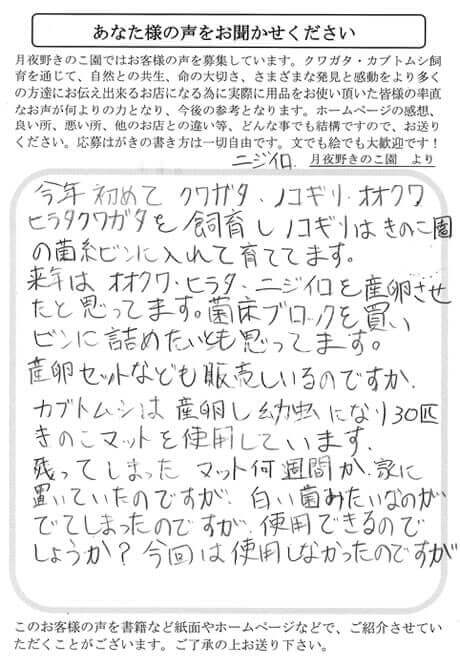 あなた様の声をお聞かせください
月夜野きのこ園ではお客様の声を募集しています。クワガタ・カブトムシ飼
育を通じて、自然との共生、命の大切さ、さまざまな発見と感動をより多く
の方達にお伝え出来るお店になる為に実際に用品をお使い頂いた皆様の率直
なお声が何よりの力となり、今後の参考となります。ホームページの感想、
良い所、悪い所、他のお店との違い等、どんな事でも結構ですので、お送り
ください。応募はがきの書き方は一切自由です。文でも絵でも大歓迎です！
月夜野きのこ園　より
ニジイロ.
今年初めて クワガタ、ノコギリ・オオクワ
ヒラタクワガタを飼育しノコギリはきのこ園
の菌糸ビンに入れて育ててます。
来年は オオクワ・ヒラタ、ニジイロを産卵させ
たと思ってます。菌床ブロックを買い
ビンに詰めたいとも思ってます。
産卵セットなども販売しいるのですか.
カブトムシは産卵し幼虫になり30匹
きのこマットを使用しています.
残ってしまった マット何週間か.家に
置いていたのですが. 白い菌みたいなのが
でてしまったのですが.使用できるので
しょうか？ 今回は使用しなかったのですが
このお客様の声を書籍など紙面やホームページなどで、ご紹介させてい
ただくことがございます。ご了承の上お送り下さい。